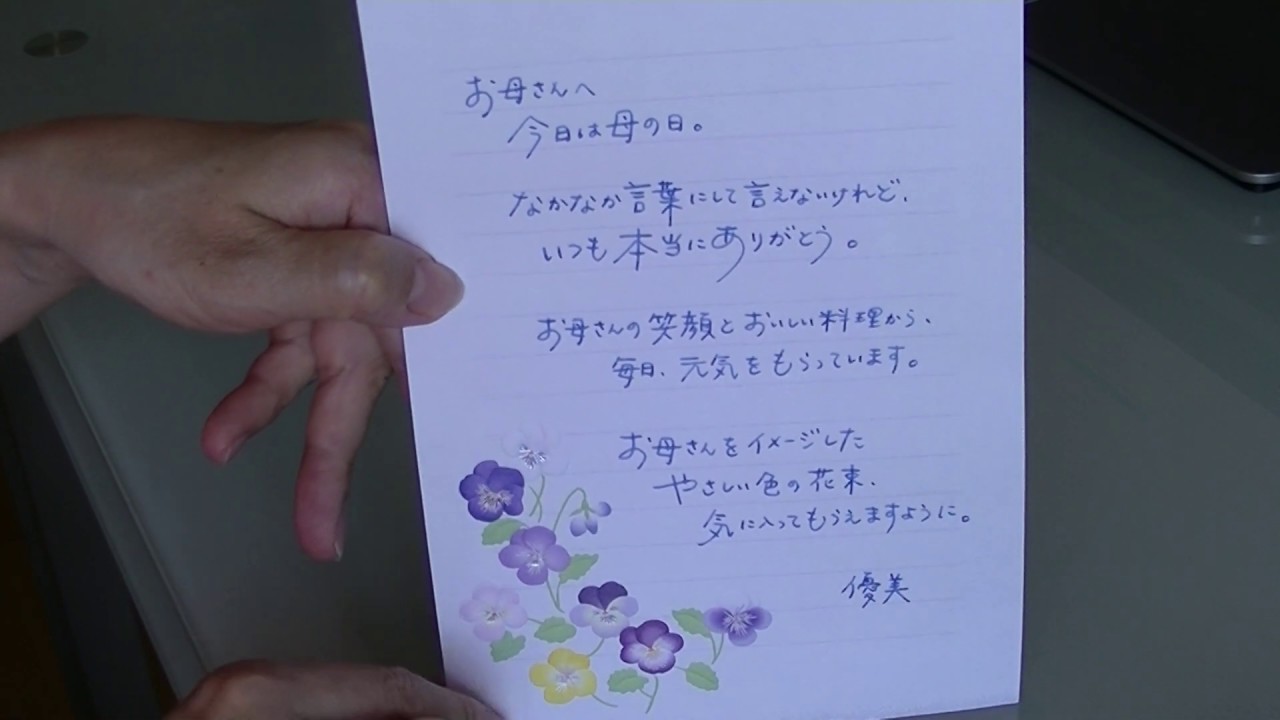 お母さんへ
今日は母の日。
なかなか言葉にして言えないけれど、
いつも本当にありがとう。
お母さんの笑顔とおいしい料理から、
毎日、元気をもらっています。
お母さんをイメージした
やさしい色の花束、
気に入ってもらえますように。
優美